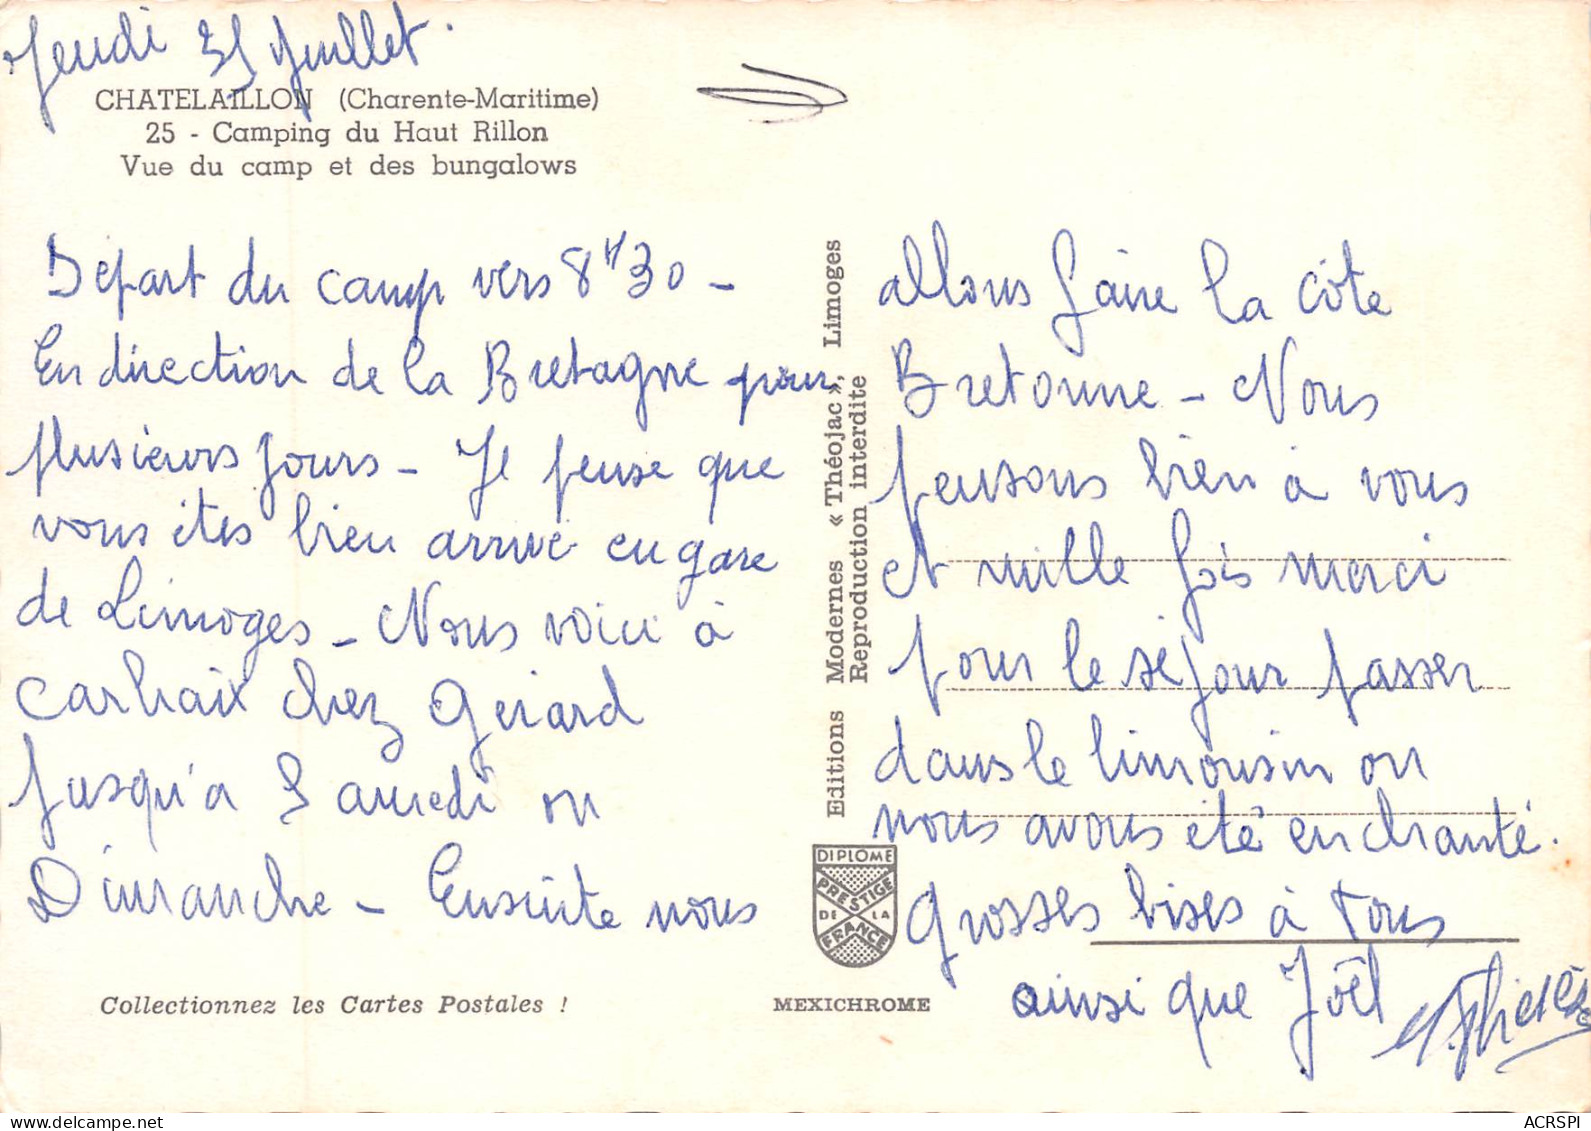 Jeudi 25 Juillet.
CHATELAILLON (Charente-Maritime)
25 - Camping du Haut Rillon
Vue du camp et des bungalows
Départ du camp vers 8H30 -
En direction de la Bretagne pour
plusieurs jours - Je pense que
vous êtes bien arrivé en gare
de Limoges - Nous voici à
Carhaix chez Gérard
Jusqu'a Samedi ou
Dimanche - Ensuite nous
Editions Modernes « Théojac », Limoges
Reproduction interdite
allons faire la côte
Bretonne - Nous
pensons bien à vous
et mille fois merci
pour le séjour passer
dans le limousin ou
nous avons été enchanté.
Grosses bises à tous
ainsi que Joël
DIPLOME
PRESTIGE
DE LA
FRANCE
Collectionnez les Cartes Postales !
MEXICHROME
ACRSPI